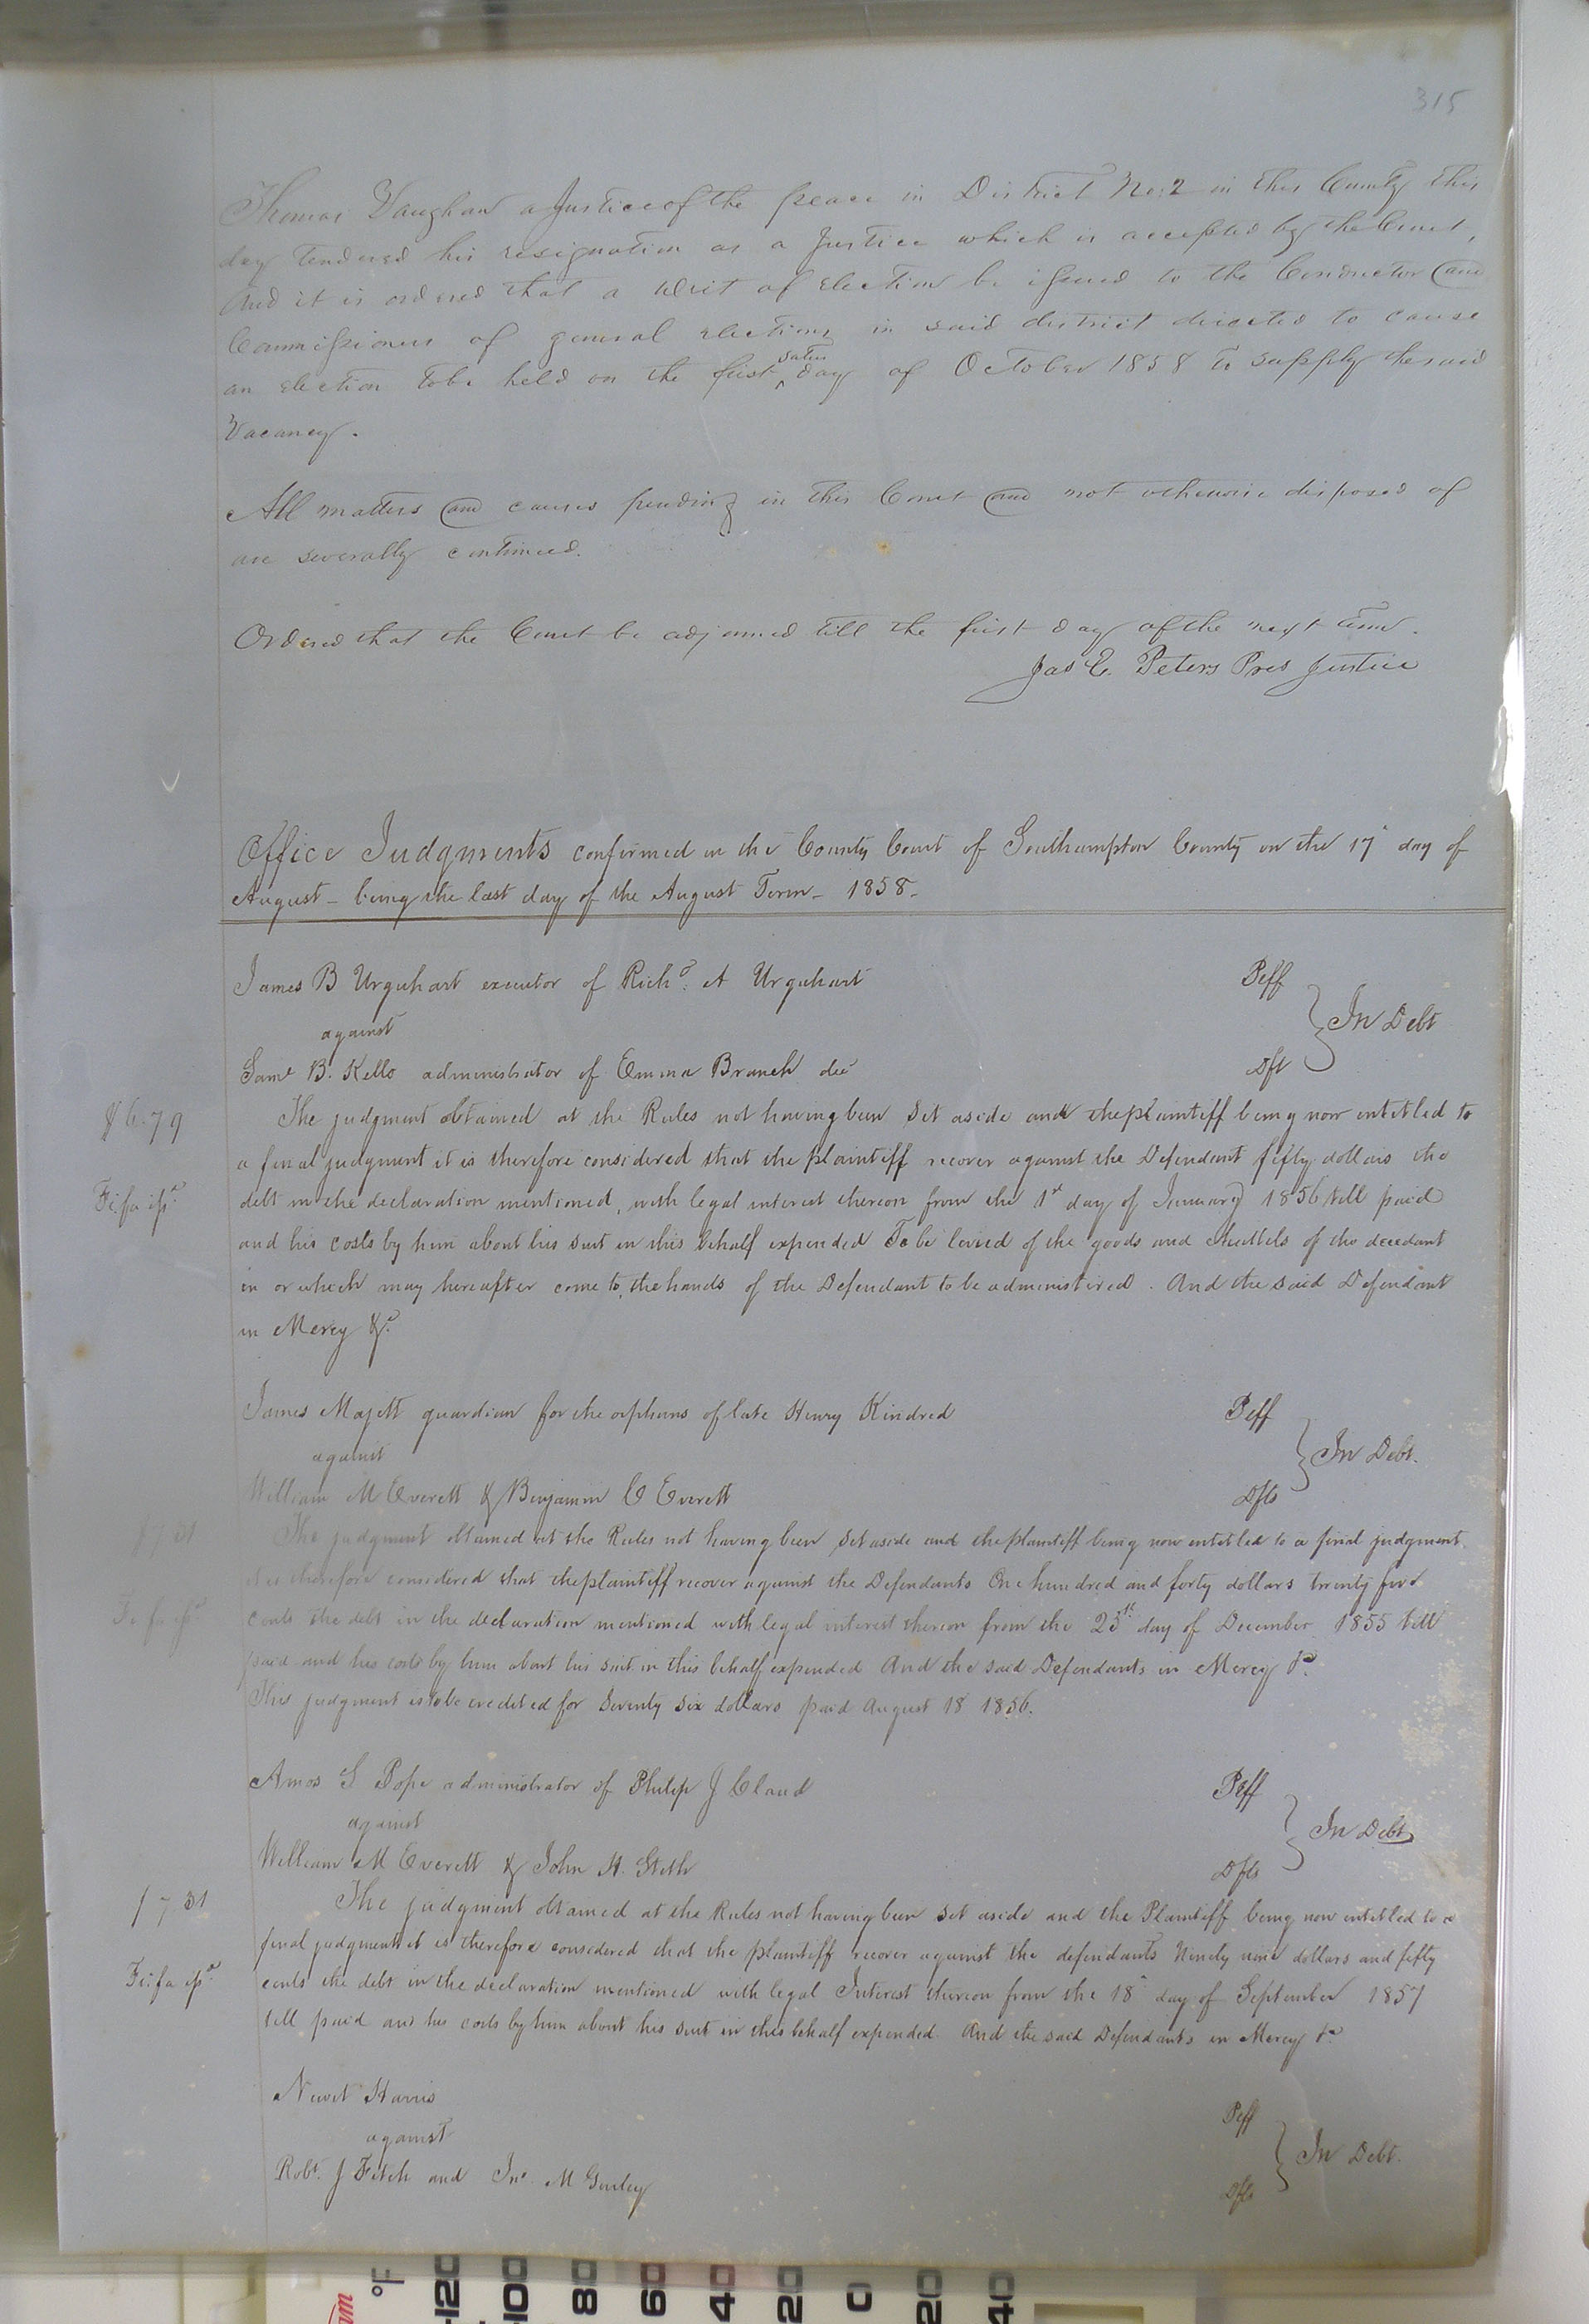 315
Thomas Vaughan a Justice of the peace in District No: 2 in this County this
day tendered his resignation as a Justice which is accepted by the Court,
And it is ordered that a Writ of Election be issued to the Conductor and
Commissioners of general elections in said district directed to cause
an election to be held on the first satur day of October 1858 to supply the said
Vacancy.
All matters and causes pending in this Court and not otherwise disposed of
are severally continued.
Ordered that the Court be adjourned till the first day of the next term.
Jas E. Peters Pres Justice
Office Judgments confirmed in the County Court of Southampton County on the 17 day of
August - being the last day of the August Term - 1858.
James B Urquhart executor of Richd. A Urquhart Peff
against In Debt
Saml B. Kello administrator of Emma Branch dec Dft
$6.79 The judgment obtained at the Rules not having been set aside and the plaintiff being now entitled to
a final judgment it is therefore considered that the plaintiff recover against the Defendant fifty dollars the
Fi:fa isd. debt in the declaration mentioned, with legal interest thereon from the 1st day of January 1856 till paid
and his costs by him about his suit in this behalf expended To be levied of the goods and chattels of the decedant
in or which may hereafter come to the hands of the Defendant to be administered. And the said Defendant
in Mercy &c.
James Majett guardian for the orphans of late Henry Kindred Peff
against In Debt.
William M Everett & Benjamin C Everett Dfts
$7 31 The judgment obtained at the Rules not having been set aside and the plaintiff being now entitled to a final judgment
it is therefore considered that the plaintiff recover against the Defendants One hundred and forty dollars twenty five
Fi fa isd cents the debt in the declaration mentioned with legal interest thereon from the 25th day of December 1855 till
paid and his costs by him about his suit in this behalf expended And the said Defendants in Mercy &c.
This judgment is to be credited for Seventy six dollars paid August 18 1856.
Amos G Pope administrator of Philip J Claud Peff
against In Debt
William M Everett & John H. Stith Dfts
$7 31 The judgment obtained at the Rules not having been set aside and the Plaintiff being now entitled to a
final judgment it is therefore considered that the plaintiff recover against the defendants Ninety nine dollars and fifty
Fi:fa isd. cents the debt in the declaration mentioned with legal Interest thereon from the 18 day of September 1857
till paid and his costs by him about his suit in this behalf expended. And the said Defendants in Mercy &c
Newit Harris Peff
against In Debt.
Robt. J Fitch and Jno. M Gurley Dfts
°F 120 100 80 60 40 20 0 20 40